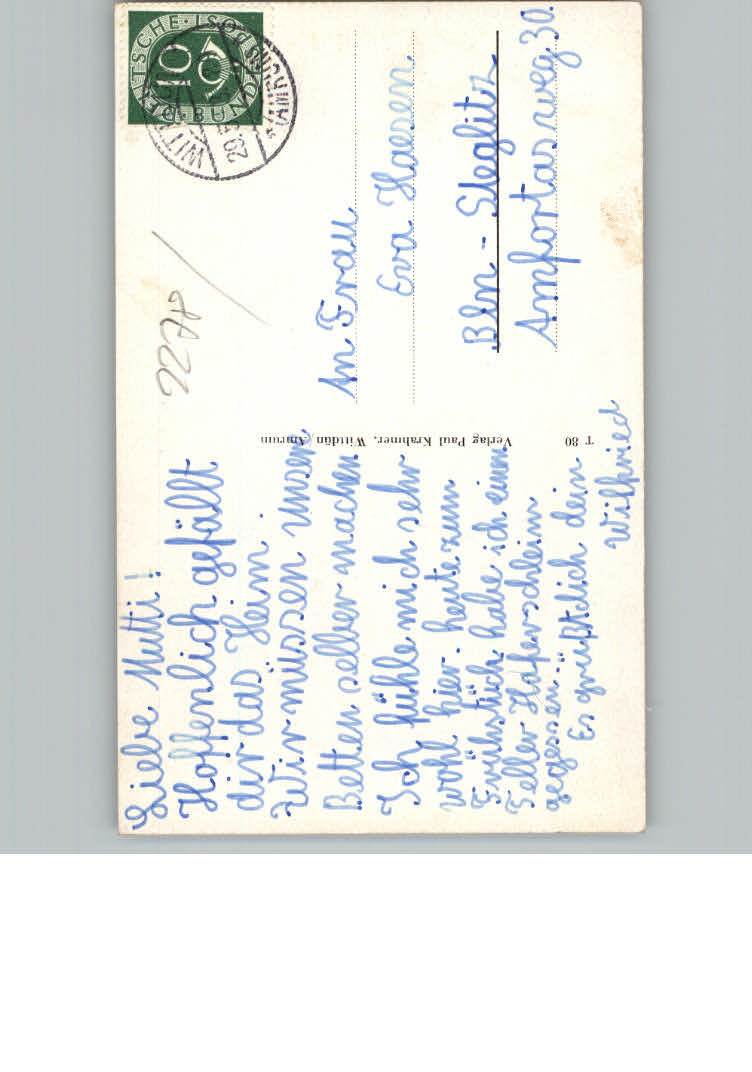 Liebe Mutti!
Hoffenlich gefällt
dir das Heim.
Wir müssen unsere
Betten selber machen
Ich fühle mich sehr
wohl hier. heute zum
Frühstück habe ich einen
Teller Haferschleim
gegessen.
Es grüßt dich dein
Wilfried
Verlag Paul Krahmer, Wittdün Amrum
T 80
DEUTSCHE BUNDESPOST
10
20.
2278
An Frau
Eva Haesen
Bln - Steglitz
Amfortasweg 30.